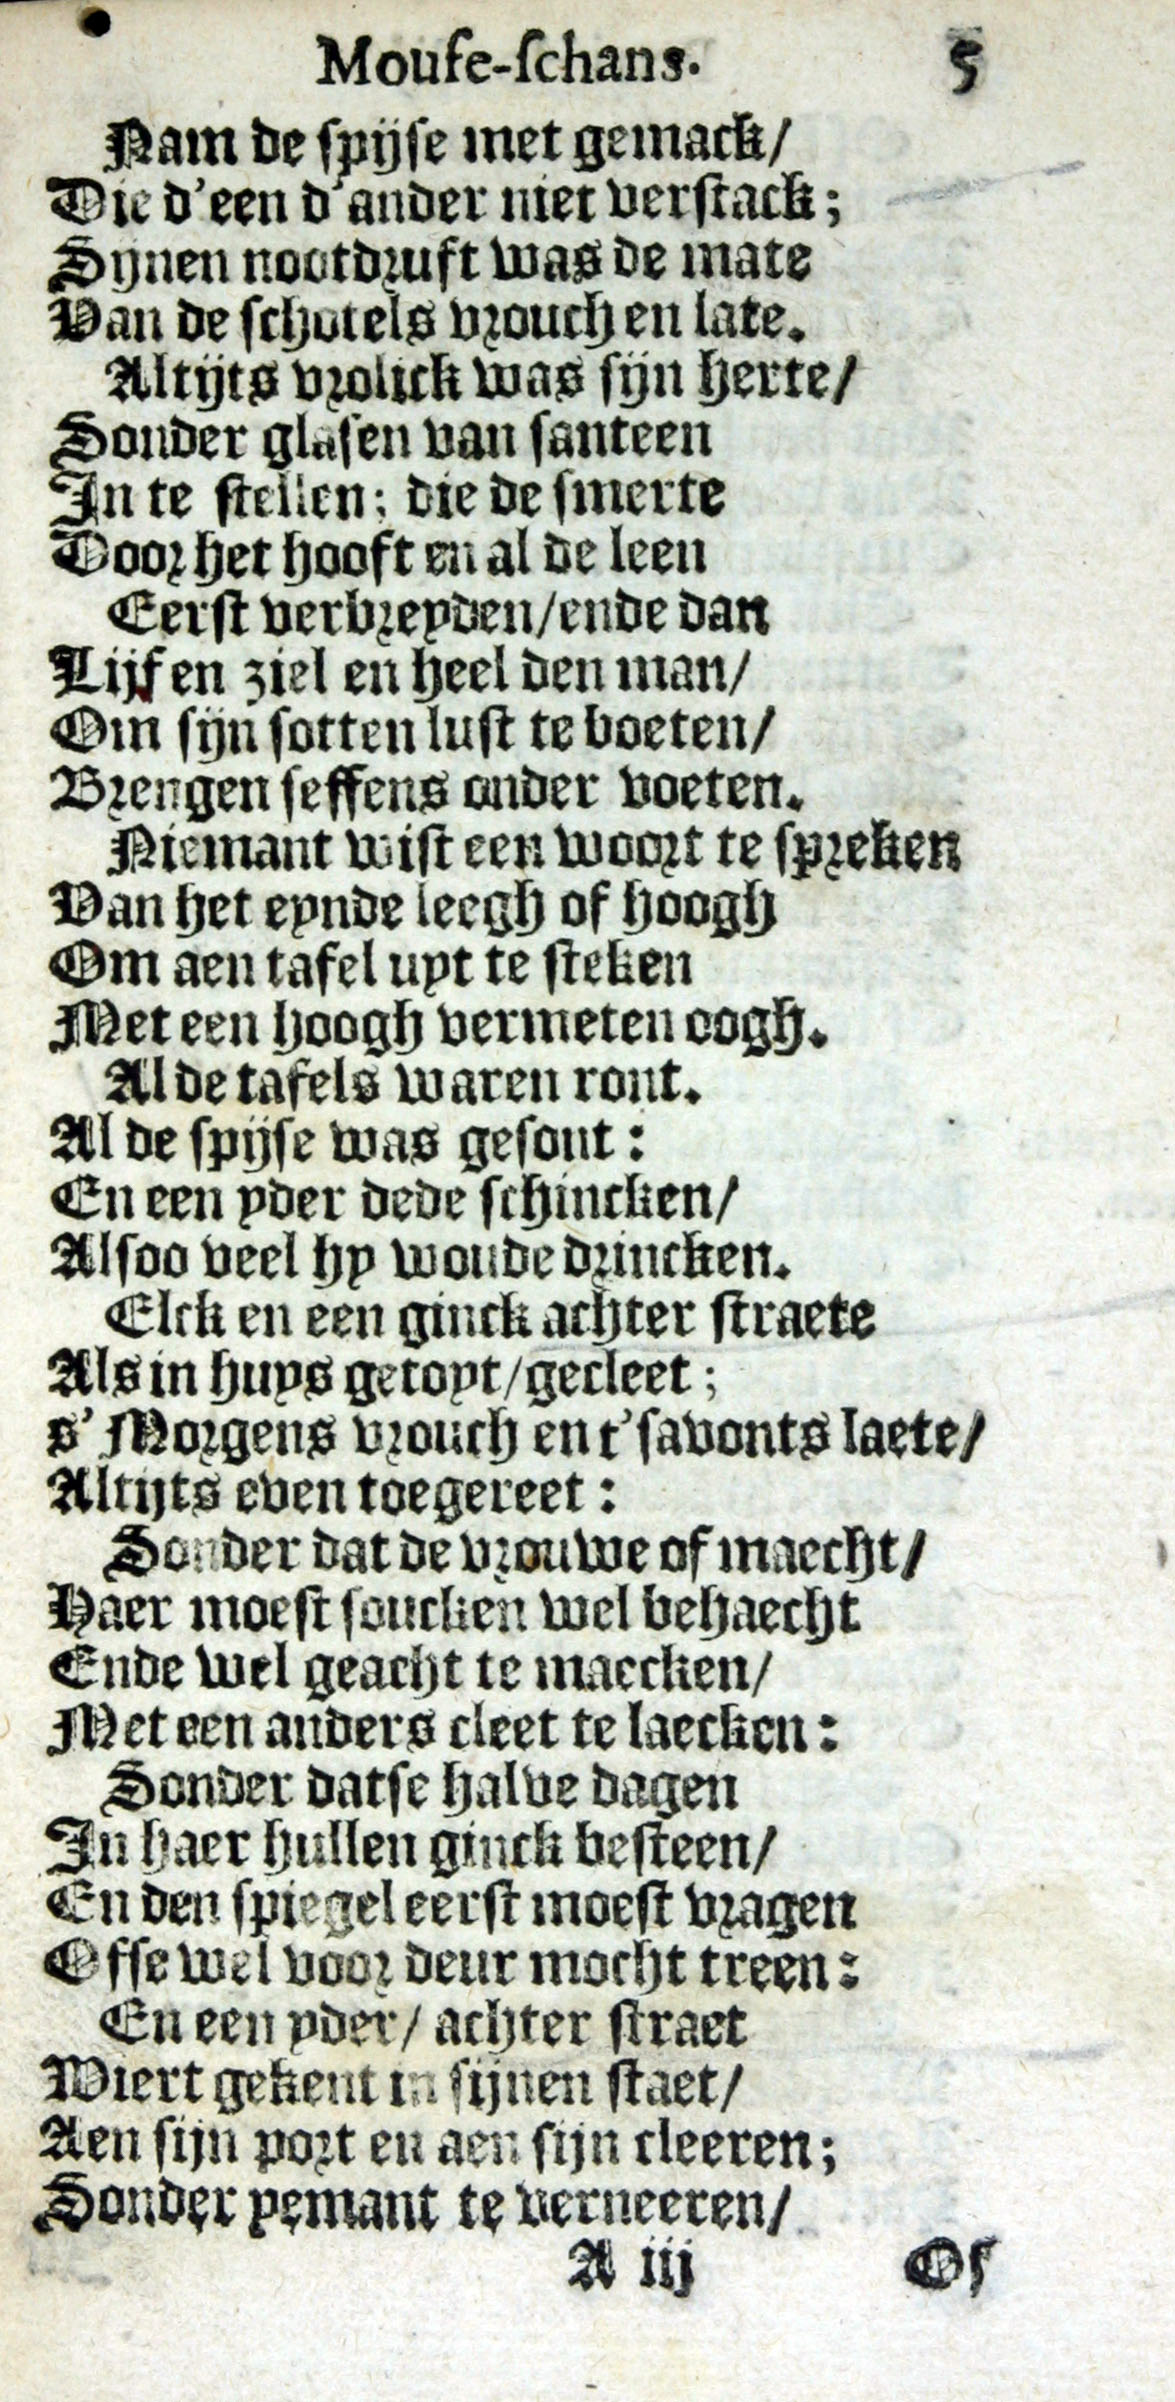 Mouse-schans. 5
Nam de spijse met gemack/
Die d'een d'ander niet verstack;
Sijnen nootdruft was de mate
Van de schotels vrouch en late.
Altijts vrolick was sijn herte/
Sonder glasen van santeen
In te stellen; die de smerte
Door het hooft en al de leen
Eerst verbreyden/ende dan
Lijf en ziel en heel den man/
Om sijn sotten lust te boeten/
Brengen seffens onder voeten.
Niemant wist een woort te spreken
Van het eynde leegh of hoogh
Om aen tafel uyt te steken
Met een hoogh vermeten oogh.
Al de tafels waren ront.
Al de spijse was gesont:
En een yder dede schincken/
Alsoo veel hy woude drincken.
Elck en een ginck achter straete
Als in huys getoyt/gecleet;
s' Morgens vrouch en t'savonts laete/
Altijts even toegereet:
Sonder dat de vrouwe of maecht/
Haer moest soucken wel behaecht
Ende wel geacht te maecken/
Met een anders cleet te laecken:
Sonder datse halve dagen
In haer hullen ginck besteen/
En den spiegel eerst moest vragen
Ofse wel voor deur mocht treen:
En een yder/ achter straet
Wiert gekent in sijnen staet/
Aen sijn port en aen sijn cleeren;
Sonder yemant te verneeren/
A iij Of